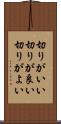 切りがいい
切りが良い
切りがよい